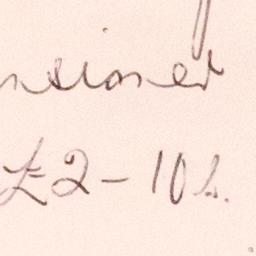 ntioned
£2-10s.